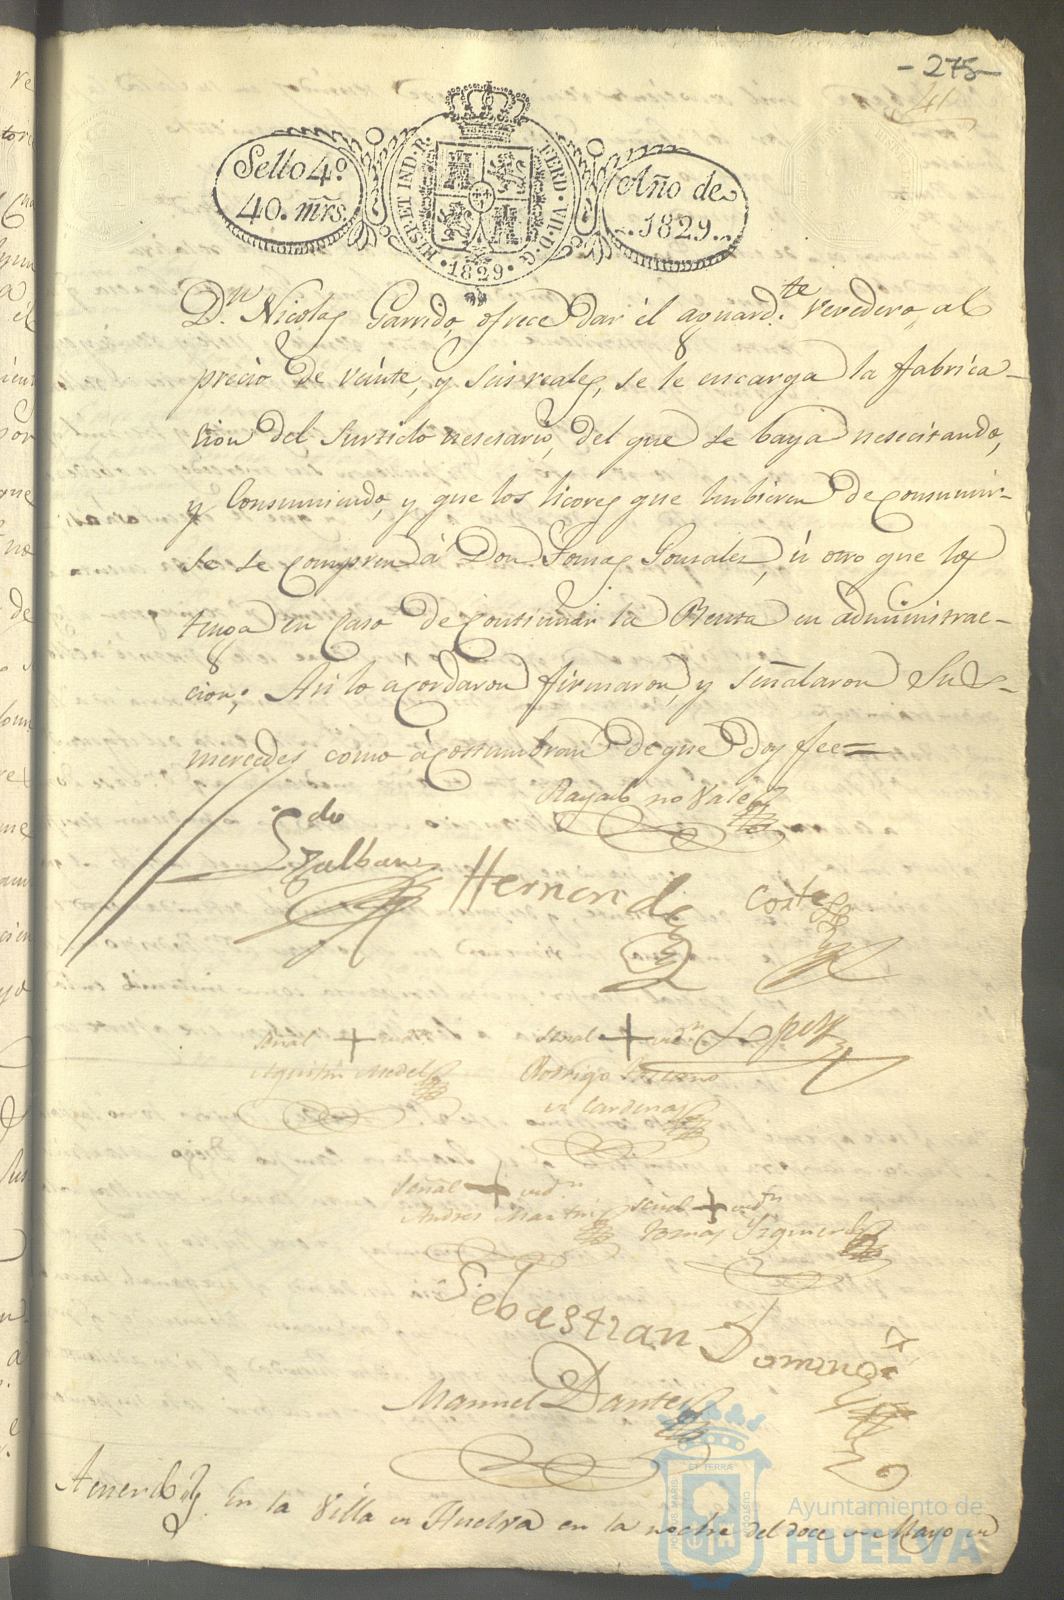 -275-
41
Sello 4º.
40. mrs.
HISP. ET IND. R.
FERD. VII. D. G.
·1829·
Año de
1829.
Dn. Nicolas Garrido, ofrece dar él aguardte. vevedero, al
precio de veinte, y seis reales, se le encarga la fabrica-
cion del surtido nesesario, del que se baya nesecitando,
y Consumiendo, y que los licores que hubieren de consumir-
se se compren á Don Tomas Gonsales, ú otro que los
tenga en caso de continuar la Renta en administrac-
cion; Asi lo ácordaron firmaron, y señalaron Sus-
mercedes como ácostumbran de que doy fee=
Rayado no Vale
Ldo
Galban
Hernandez
Cortes
señal + de
Agustin Medel
señal + de
Lopez
Rodrigo
de Cardenas
señal + de
Andres Martin
señal + de
Tomas Izquierdo
Sebastian Domingz
Manuel Dantes
Acuerdo En la Villa de Huelva en la noche del doce de Mayo de
PORTUS MARIS
ET TERRÆ
CUSTODIA
Ayuntamiento de
HUELVA